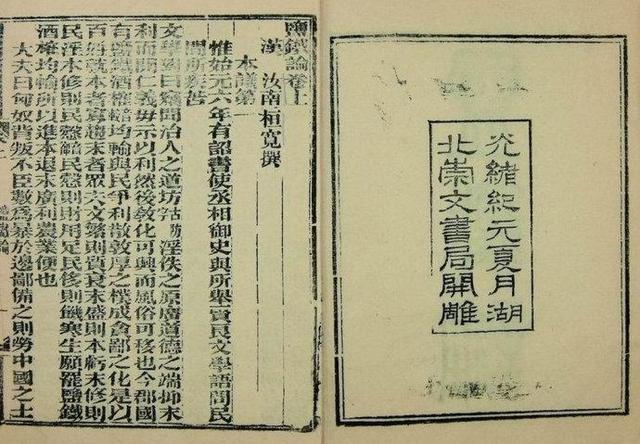 光緒紀元夏月湖
北崇文書局開雕
鹽鐵論卷上
漢 汝南桓寬撰
本議第一
惟始元六年有詔書使丞相御史與所舉賢良文學語問民
閒所疾苦
文學對曰竊聞治人之道坊淫佚之原廣道德之端抑末
利而開仁義毋示以利然後敎化可興而風俗可移也今郡國
有鹽鐵酒榷均輸與民爭利散敦厚之樸成貪鄙之化是以
百姓就本者寡趨末者眾夫文繁則質衰末盛則本虧末修則
民淫本修則民慤民慤則財用足民侈則饑寒生願罷鹽鐵
酒榷均輸所以進本退末廣利農業便也
大夫曰匈奴背叛不臣數為暴於邊鄙備之則勞中國之士